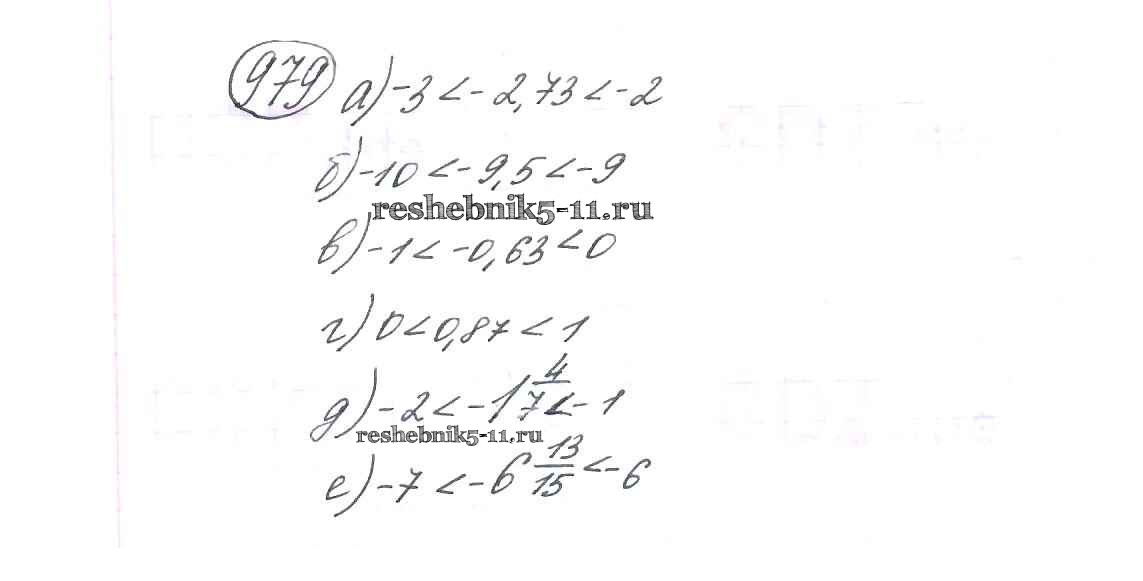 979 а) -3 < -2,73 < -2
б) -10 < -9,5 < -9
reshebnik5-11.ru
в) -1 < -0,63 < 0
г) 0 < 0,87 < 1
д) -2 < -1 4/7 < -1
reshebnik5-11.ru
е) -7 < -6 13/15 < -6